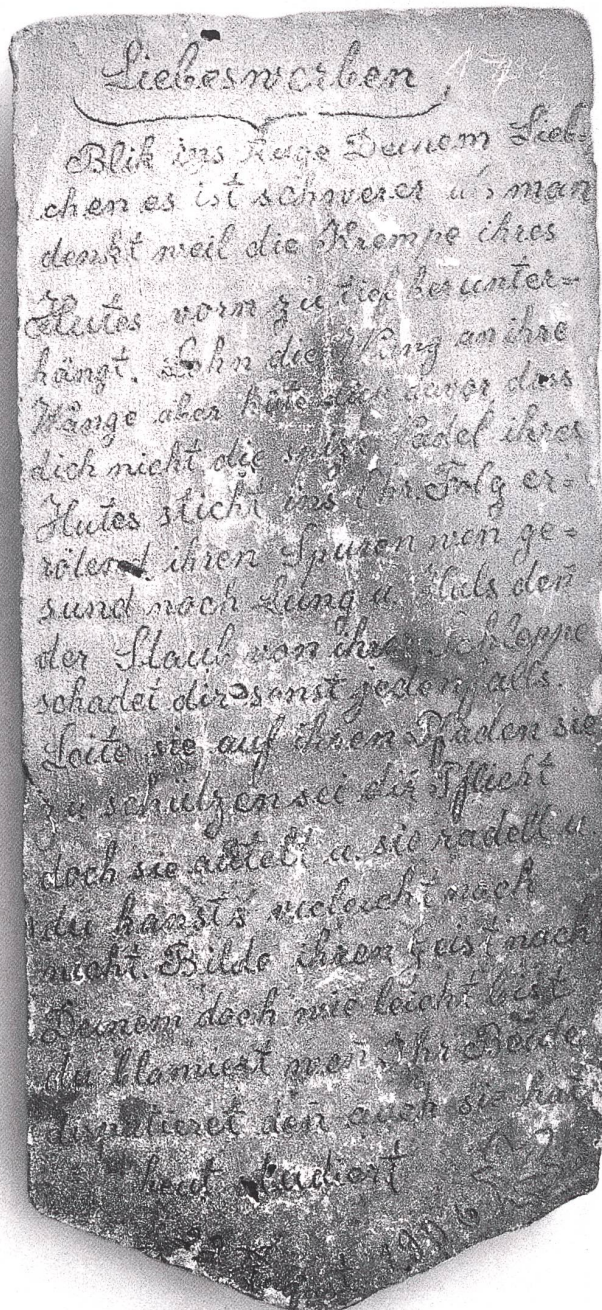 Liebeswerben,
Blik ins Auge Deinem Lieb-
chen es ist schwerer als man
denkt weil die Krempe ihres
Hutes vorn zu tief herunter-
hängt. Lehn die Wang an ihre
Wange aber hüte dich davor dass
dich nicht die spize Nadel ihres
Hutes sticht ins Ohr. Folg er-
rötend ihren Spuren wen ge-
sund noch Lung u. Hals den̄
der Staub von ihrer Schleppe
schadet dir sonst jedenfalls.
Leite sie auf ihren Pfaden sie
zu schützen sei dir Pflicht
doch sie autelt u. sie radelt u.
du kansts vieleicht noch
nicht. Bilde ihren Geist nach
Deinem doch wie leicht bist
du blamiert wen̄ Ihr Beide
disputieret den̄ auch sie hat
heut studiert
1906